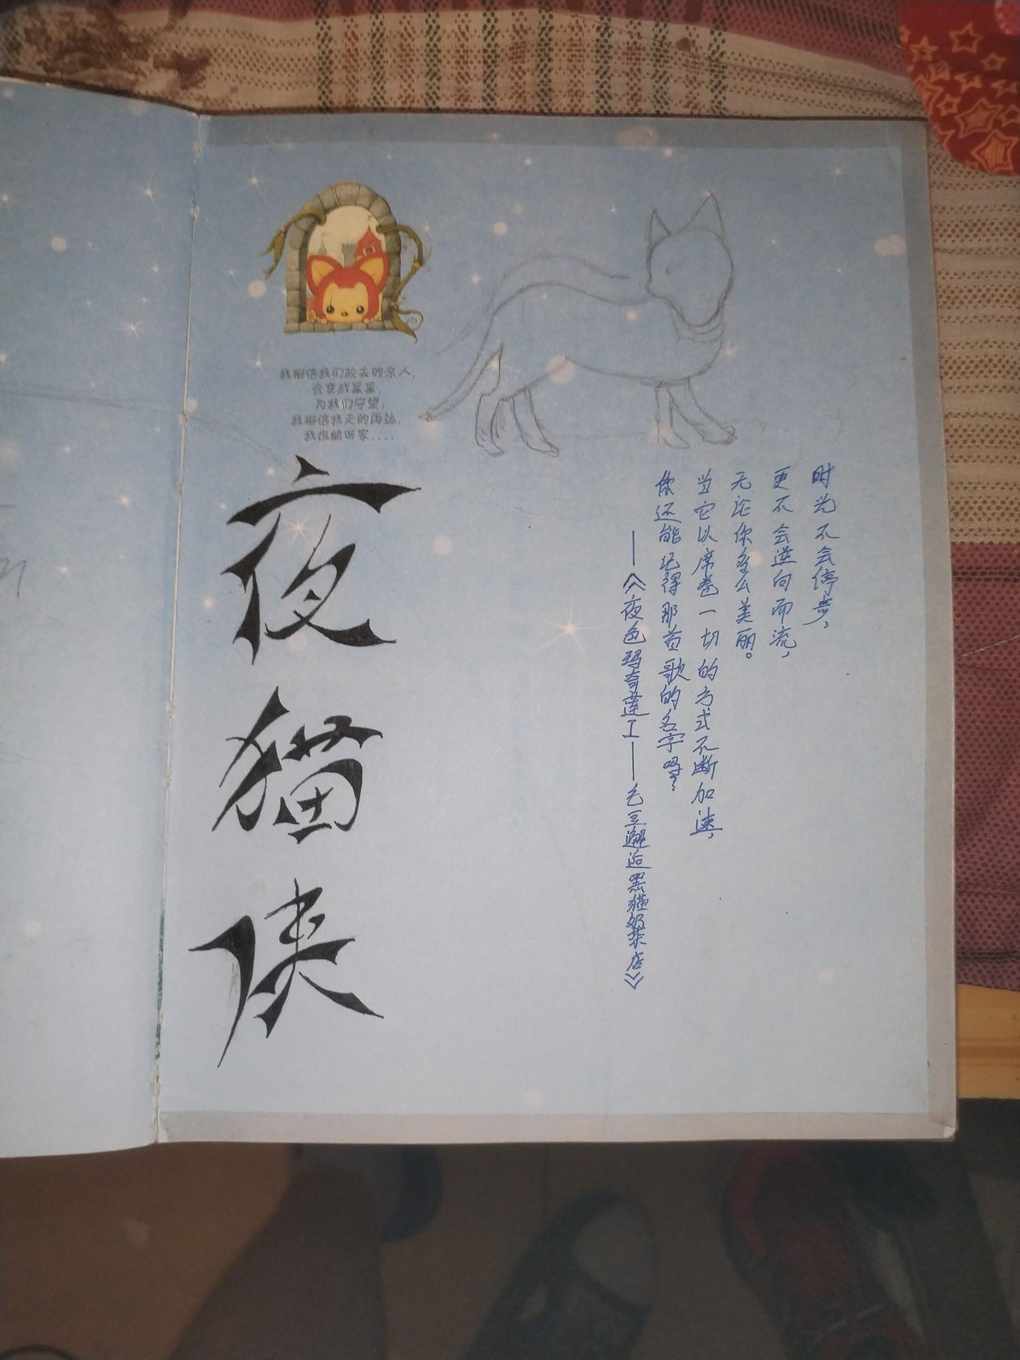 我相信我们故去的亲人,
会变成星星,
为我们守望,
我相信我走的再远,
我也能听家....
夜猫侠
时光不会停步,
更不会逆向而流,
无论你多么美丽。
当它以席卷一切的方式不断加速,
你还能记得那首歌的名字吗?
——《夜色玛奇莲工——毛豆邂逅黑猫奶茶店》